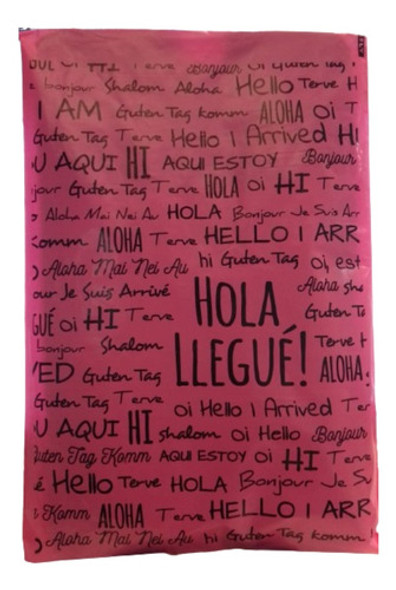 Oi HI Terve Bonjour Guten Tag
bonjour Shalom Aloha Hello Terve H
I AM Guten Tag komm ALOHA Oi T
Guten Tag Terve Hello I Arrived HI
U AQUI HI AQUI ESTOY Bonjour
jour Guten Tag Terve HOLA Oi HI Terve
Aloha Mai Nei Au HOLA Bonjour Je Suis Arr
Komm ALOHA Terve HELLO I ARR
Aloha Mai Nei Au hi Guten Tag Oi, est
our Je Suis Arrivé HOLA Aloha sha
GUÉ Oi HI Terve Guten Ta
bonjour Shalom LLEGUÉ! Terve H
VED Guten Tag ALOHA
Guten Tag Terve Oi Hello I Arrived Ter
U AQUI HI shalom Oi Hello Bonjour
Guten Tag Komm AQUI ESTOY Oi HI Terve
é Hello Terve HOLA Bonjour Je Su
Komm ALOHA Terve HELLO I ARR
Aloha Mai Nei Au hi Guten Tag Komm Oi, e